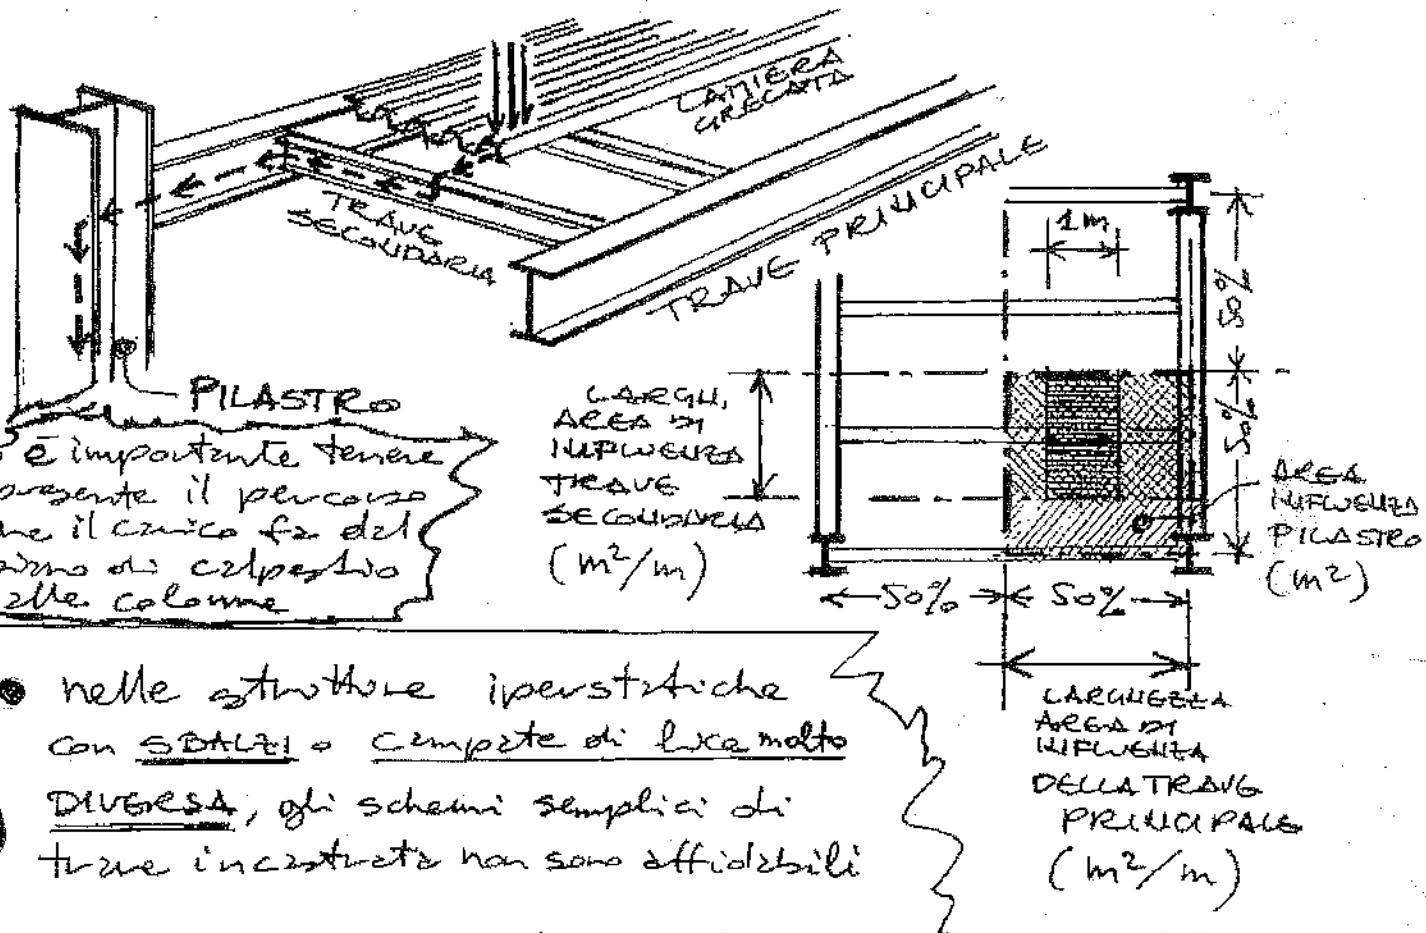 LAMIERA
GRECATA
TRAVE
SECONDARIA
TRAVE PRINCIPALE
PILASTRO
è importante tenere
presente il percorso
che il carico fa dal
piano di calpestio
alle colonne
1 m
50%
50%
LARGH.
AREA DI
INFLUENZA
TRAVE
SECONDARIA
(m²/m)
AREA
INFLUENZA
PILASTRO
(m²)
50% 50%
LARGHEZZA
AREA DI
INFLUENZA
DELLA TRAVE
PRINCIPALE
(m²/m)
• nelle strutture iperstatiche
con SBALZI o campate di luce molto
DIVERSA, gli schemi semplici di
trave incastrata non sono affidabili